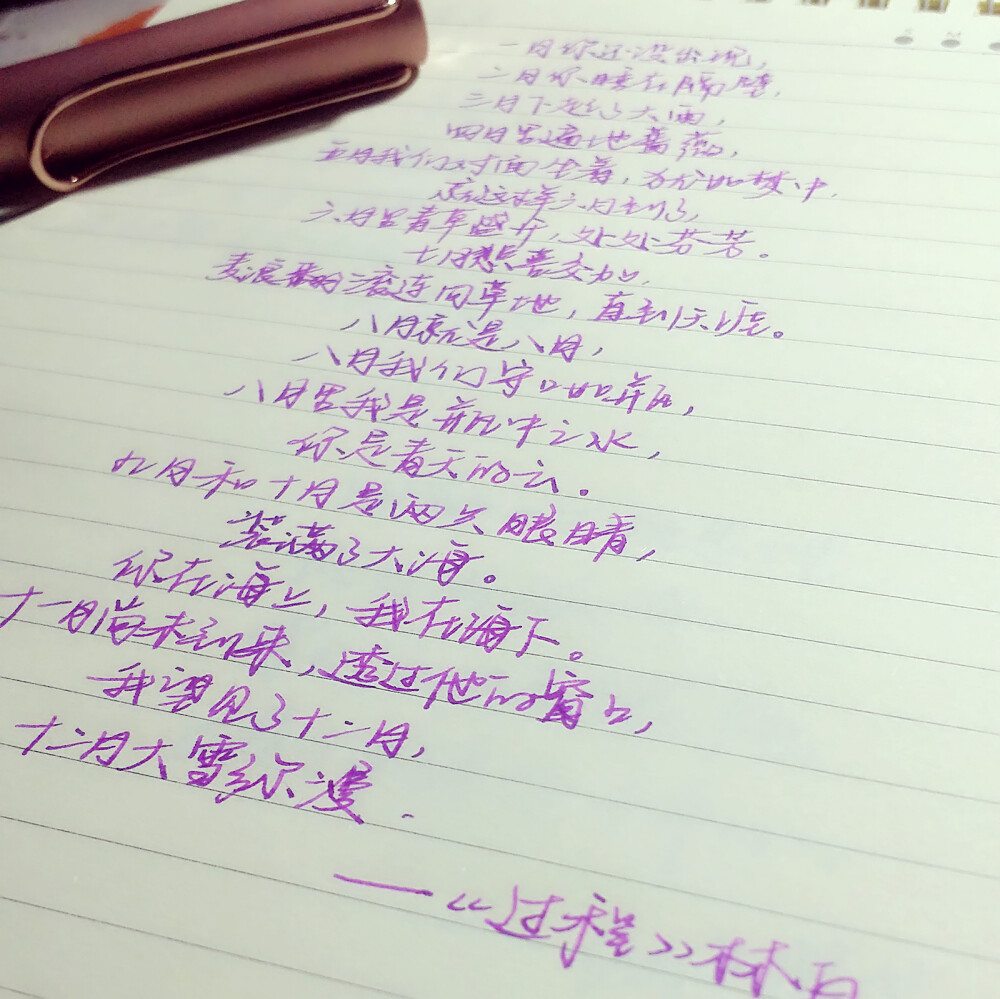 一月你还没出现，
二月你睡在隔壁，
三月下起了大雨，
四月里遍地蔷薇，
五月我们对面坐着，犹如梦中，
就这样六月到了，
六月里青草盛开，处处芬芳。
七月悲喜交加，
麦浪翻滚连同草地，直到天涯。
八月就是八月，
八月我们守口如瓶，
八月里我是瓶中之水，
你是青天的云。
九月和十月是两只眼睛，
装满了大海。
你在海上，我在海下。
十一月尚未到来，透过他的窗口，
我望见了十二月，
十二月大雪弥漫．
——《过程》林白